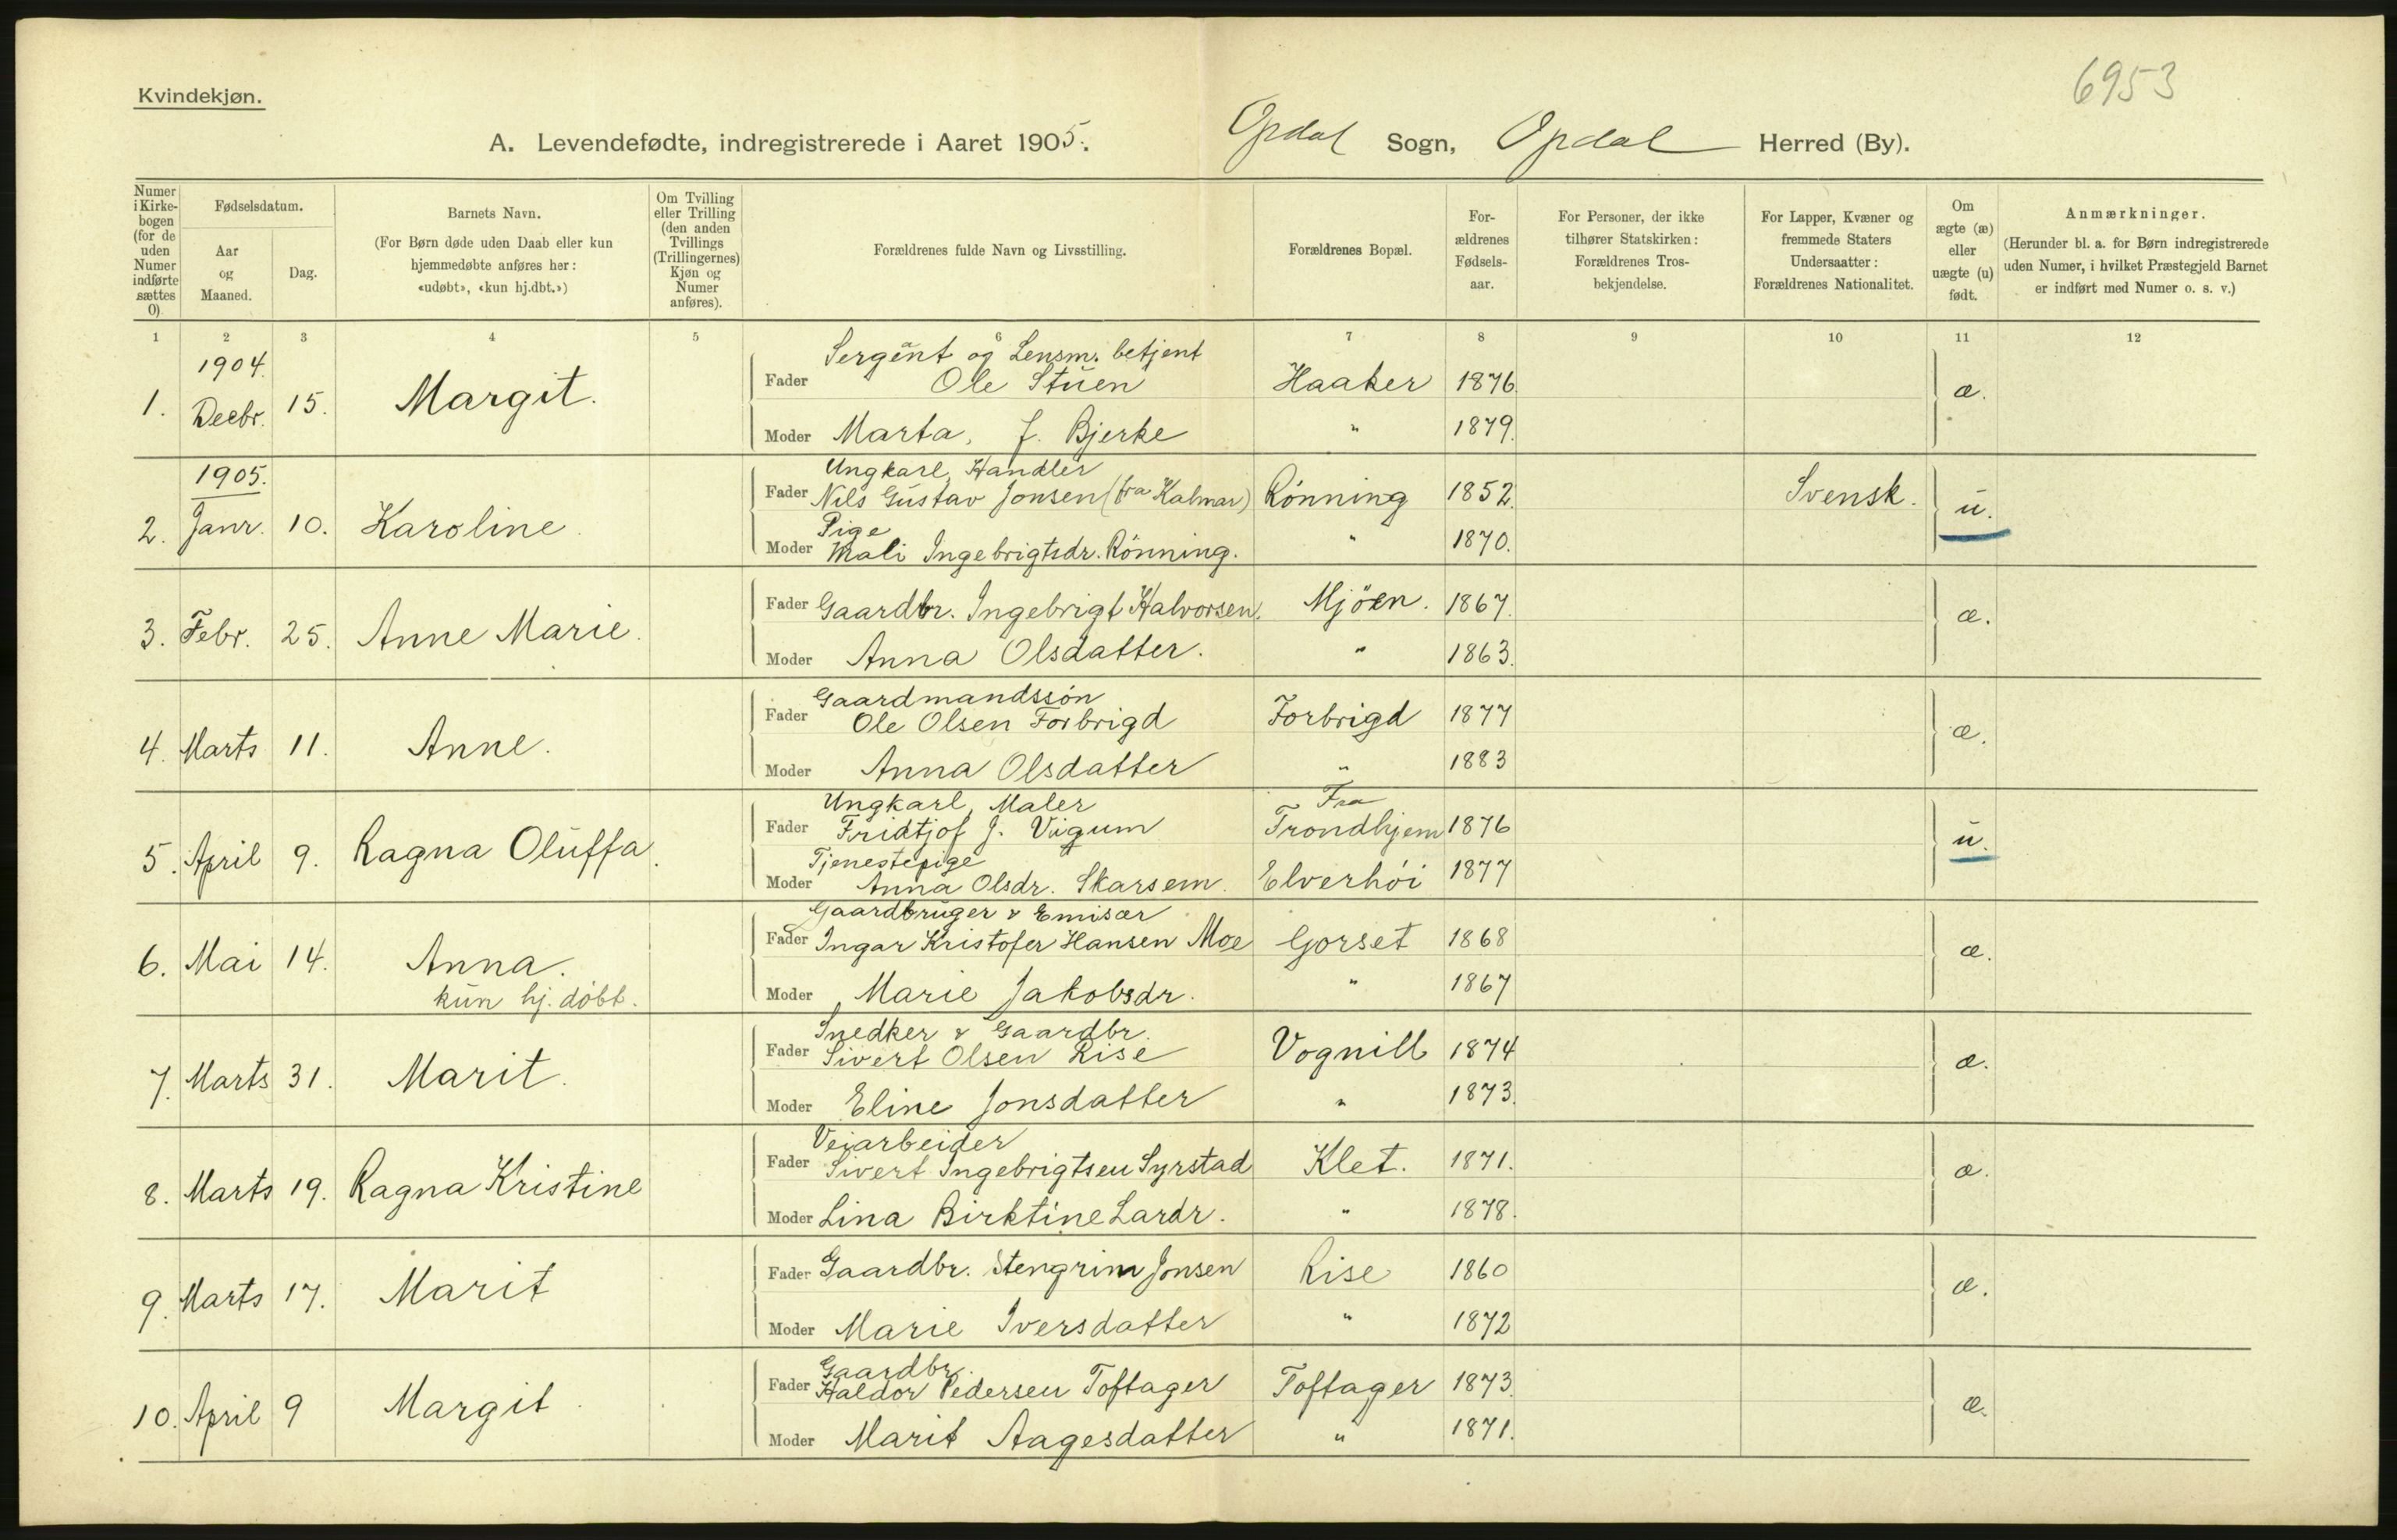 6953
Kvindekjøn.
A. Levendefødte, indregistrerede i Aaret 1905. Opdal Sogn, Opdal Herred (By).
Numer i Kirke-bogen (for de uden Numer indførte sættes 0)
Fødselsdatum.
Aar og Maaned.
Dag.
Barnets Navn.
(For Børn døde uden Daab eller kun
hjemmedøbte anføres her:
«udøbt», «kun hj.dbt.»)
Om Tvilling
eller Trilling
(den anden
Tvillings
(Trillingernes)
Kjøn og
Numer
anføres).
Forældrenes fulde Navn og Livsstilling.
Forældrenes Bopæl.
For-
ældrenes
Fødsels-
aar.
For Personer, der ikke
tilhører Statskirken:
Forældrenes Tros-
bekjendelse.
For Lapper, Kvæner og
fremmede Staters
Undersaatter:
Forældrenes Nationalitet.
Om
ægte (æ)
eller
uægte (u)
født.
Anmærkninger.
(Herunder bl. a. for Børn indregistrerede
uden Numer, i hvilket Præstegjeld Barnet
er indført med Numer o. s. v.)
1 2 3 4 5 6 7 8 9 10 11 12
1904.
Sergent og Lensm. betjent
1. Decbr. 15. Margit. Fader Ole Stuen Haaker 1876. æ.
Moder Marta, f. Bjerke " 1879.
1905.
Ungkarl, Handler
Fader Nils Gustav Jonsen (fra Kalmar) Rönning 1852. Svensk. u.
2. Janr. 10. Karoline.
Pige
Moder Mali Ingebrigtsdr. Rönning. " 1870.
Fader Gaardbr. Ingebrigt Halvorsen. Mjöen. 1867. æ.
3. Febr. 25. Anne Marie.
Moder Anna Olsdatter. " 1863.
Gaardmandssön
Fader Ole Olsen Forbrigd Forbrigd 1877 æ.
4. Marts 11. Anne.
Moder Anna Olsdatter " 1883
Ungkarl, Maler Fra
Fader Fridtjof J. Viigum Trondhjem 1876 u.
5. April 9. Ragna Oluffa.
Tjenestepige
Moder Anna Olsdr. Skarsem. Elverhöi 1877
Gaardbruger & Emisær
Fader Ingar Kristofer Hansen Moe Gorset 1868 æ.
6. Mai 14. Anna.
kun hj. döbt.
Moder Marie Jakobsdr. " 1867
Snedker & Gaardbr.
Fader Sivert Olsen Rise Vognill 1874 æ.
7. Marts 31. Marit.
Moder Eline Jonsdatter " 1873.
Veiarbeider
Fader Sivert Ingebrigtsen Syrstad Klet. 1871. æ.
8. Marts 19. Ragna Kristine
Moder Lina Birktine Lardr. " 1878.
Fader Gaardbr. Stengrim Jonsen Rise 1860 æ.
9. Marts 17. Marit
Moder Marie Iversdatter " 1872
Gaardbr.
Fader Haldor Pedersen Toftager Toftager 1873. æ.
10. April 9 Margit.
Moder Marit Aagesdatter " 1871.